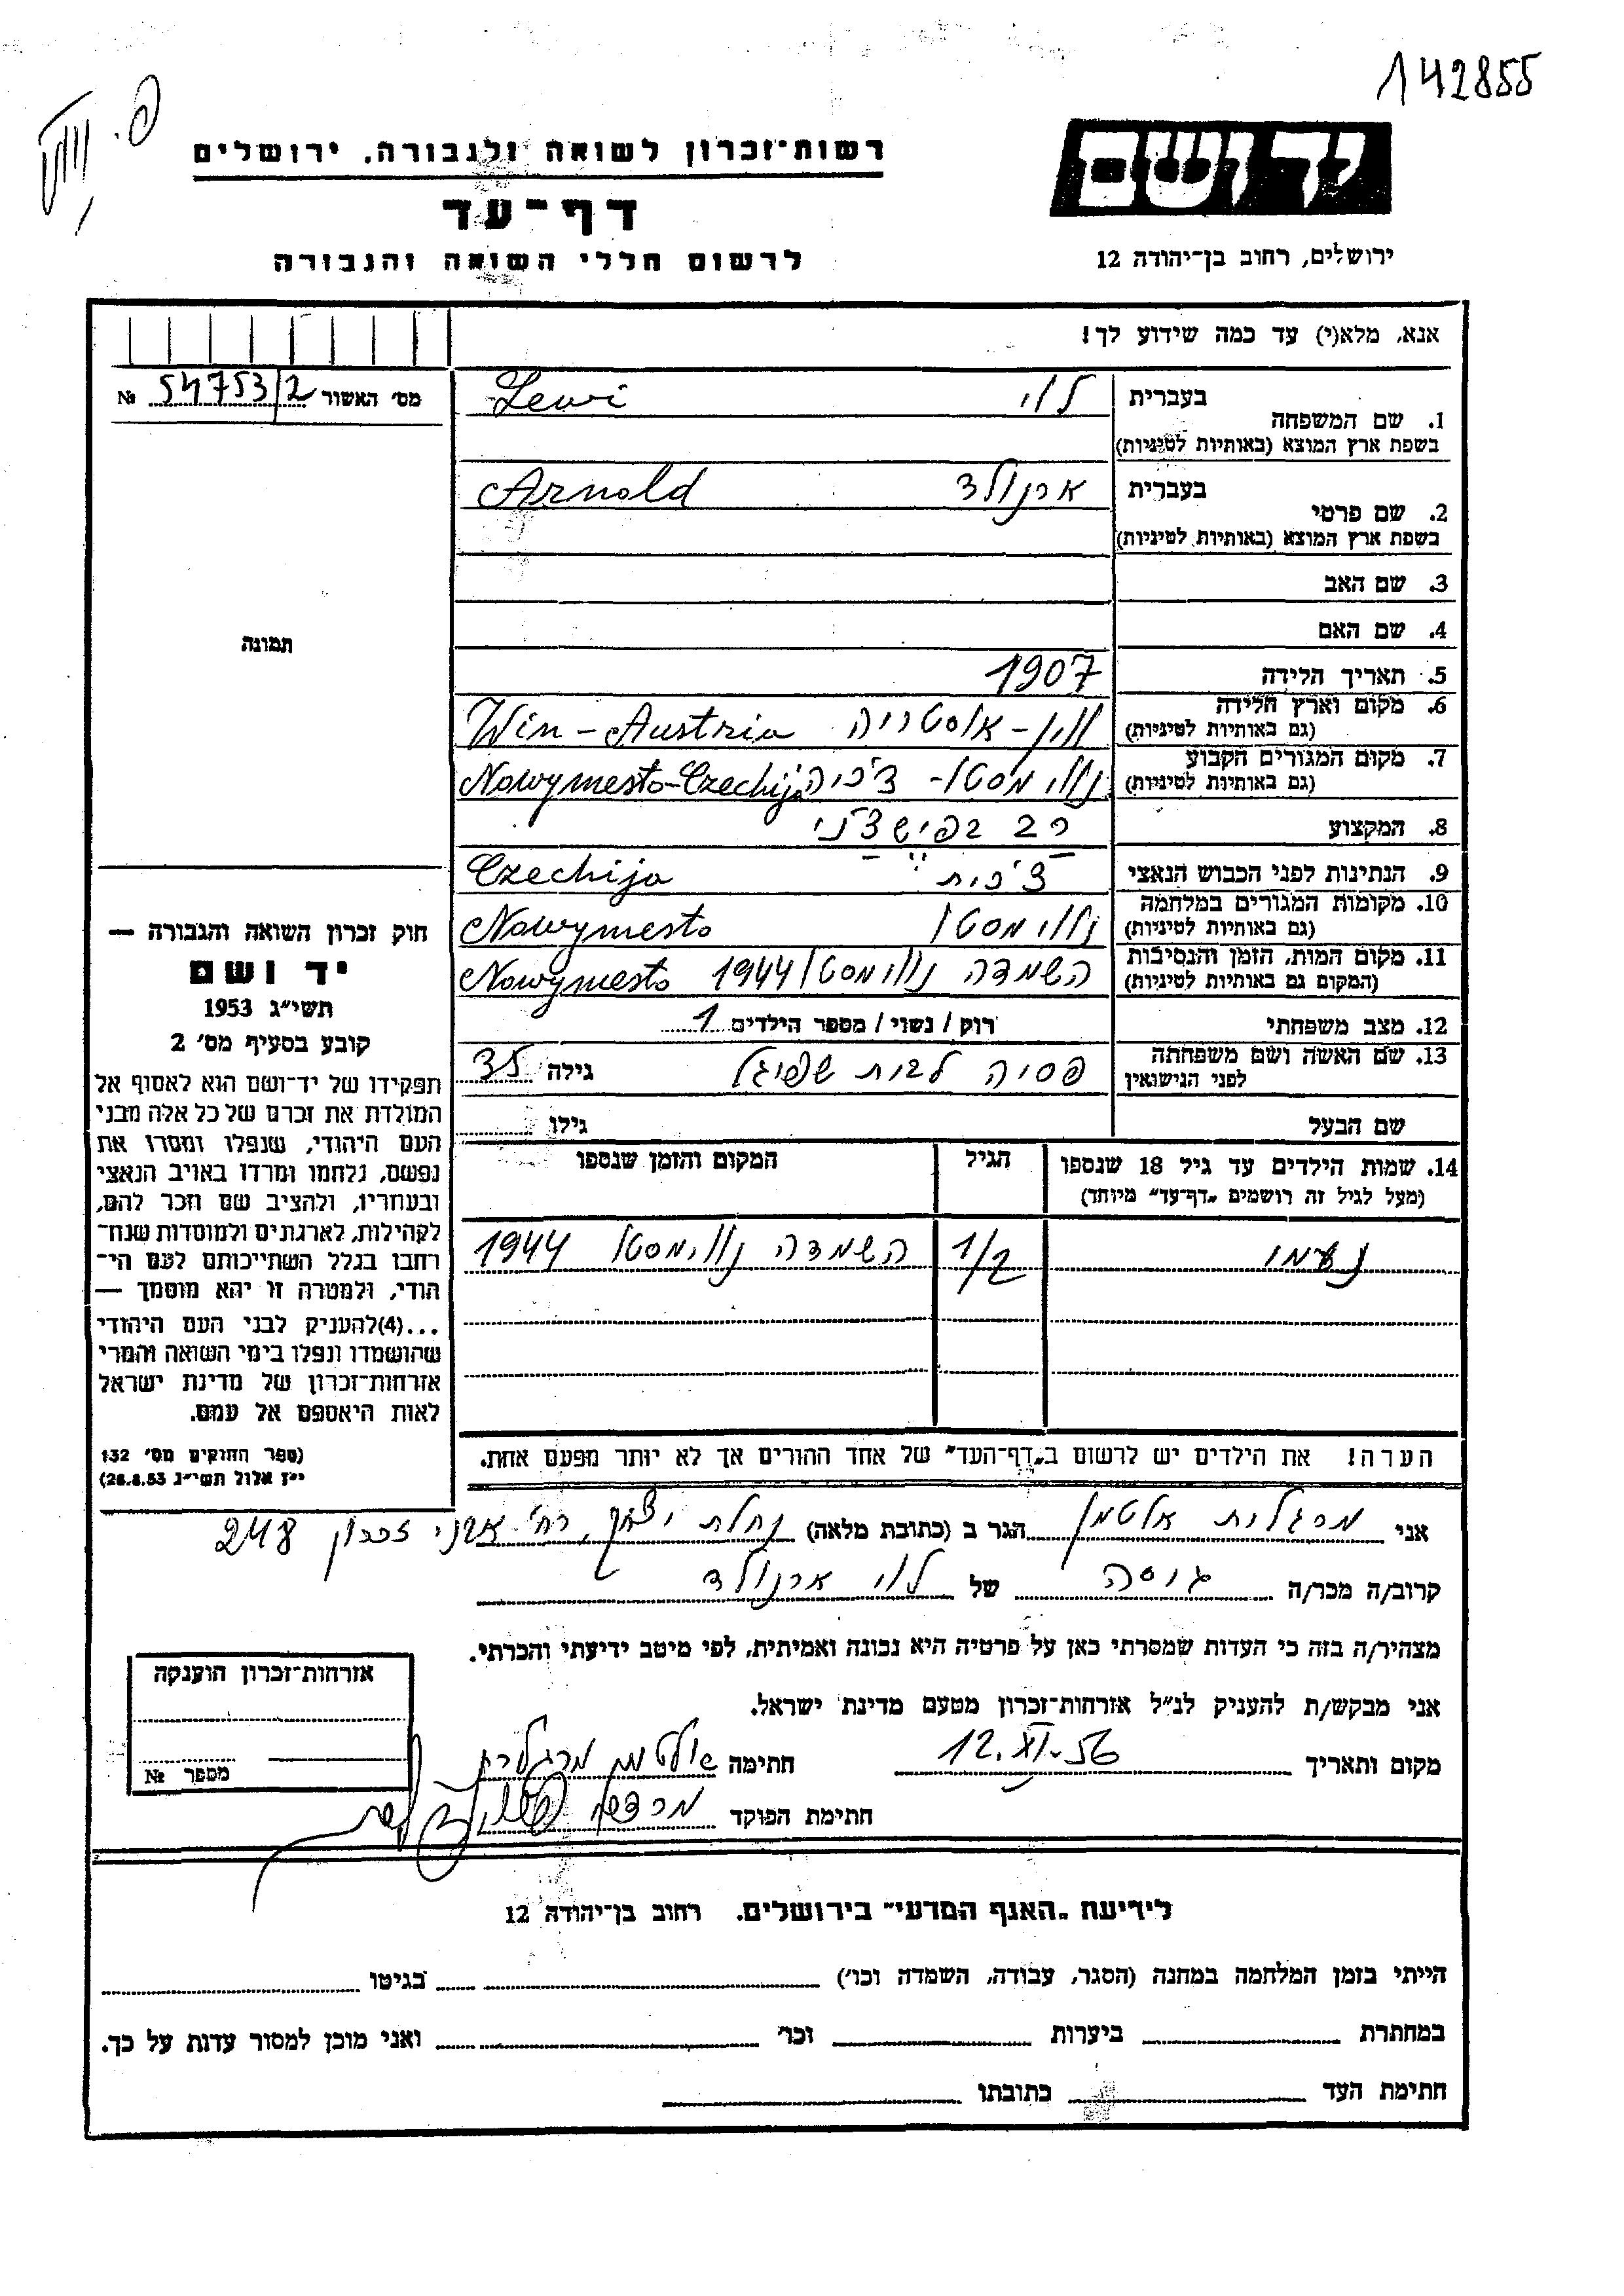 142855
יד ושם
ירושלים, רחוב בן־יהודה 12
רשות־זכרון לשואה ולגבורה. ירושלים
דף־עד
לרשום חללי השואה והגבורה
אנא, מלא(י) עד כמה שידוע לך!
מס׳ האשור 54753/2 №
תמונה
1. שם המשפחה
בעברית לוי
בשפת ארץ המוצא (באותיות לטיניות) Lewi
2. שם פרטי
בעברית ארנולד
בשפת ארץ המוצא (באותיות לטיניות) Arnold
3. שם האב
4. שם האם
5. תאריך הלידה 1907
6. מקום וארץ הלידה וין - אוסטריה Win - Austria
(גם באותיות לטיניות)
7. מקום המגורים הקבוע נווימסטו - צ'כיה Nowymesto - Czechija
(גם באותיות לטיניות)
8. המקצוע רב
9. הנתינות לפני הכבוש הנאצי צ'כית Czechija
10. מקומות המגורים במלחמה נווימסטו Nowymesto
(גם באותיות לטיניות)
11. מקום המות, הזמן והנסיבות השמדה נווימסטו 1944 Nowymesto
(המקום גם באותיות לטיניות)
12. מצב משפחתי רוק / נשוי / מספר הילדים 1
13. שם האשה ושם משפחתה פסיה לבית שפיגל גילה 35
לפני הנישואין
שם הבעל גילו
14. שמות הילדים עד גיל 18 שנספו הגיל המקום והזמן שנספו
(מעל לגיל זה רושמים „דף־עד״ מיוחד)
נעמי 1/2 השמדה נווימסטו 1944
הערה! את הילדים יש לרשום ב„דף־העד״ של אחד ההורים אך לא יותר מפעם אחת.
חוק זכרון השואה והגבורה —
יד ושם
תשי״ג 1953
קובע בסעיף מס׳ 2
תפקידו של יד־ושם הוא לאסוף אל
המולדת את זכרם של כל אלה מבני
העם היהודי, שנפלו ומסרו את
נפשם, נלחמו ומרדו באויב הנאצי
ובעוזריו, ולהציב שם וזכר להם,
לקהילות, לארגונים ולמוסדות שנח־
רבו בגלל השתייכותם לעם הי־
הודי, ולמטרה זו יהא מוסמך —
...(4) להעניק לבני העם היהודי
שהושמדו ונפלו בימי השואה והמרי
אזרחות־זכרון של מדינת ישראל
לאות היאספם אל עמם.
(ספר החוקים מס׳ 132
י״ז אלול תשי״ג 28.8.53)
אני מרגלית אלטמן הגר ב (כתובת מלאה) נחלת יצחק, רח׳ אבני זכרון 248
קרוב/ה מכר/ה גיסה של לוי ארנולד
מצהיר/ה בזה כי העדות שמסרתי כאן על פרטיה היא נכונה ואמיתית, לפי מיטב ידיעתי והכרתי.
אני מבקש/ת להעניק לנ״ל אזרחות־זכרון מטעם מדינת ישראל.
מקום ותאריך 12.XI.56 חתימה אלטמן מרגלית
חתימת הפוקד מרדכי
אזרחות־זכרון הוענקה
מספר №
לידיעת „האגף המדעי״ בירושלים. רחוב בן־יהודה 12
הייתי בזמן המלחמה במחנה (הסגר, עבודה, השמדה וכו׳) בגיטו
במחתרת ביערות וכו׳ ואני מוכן למסור עדות על כך.
חתימת העד כתובתו